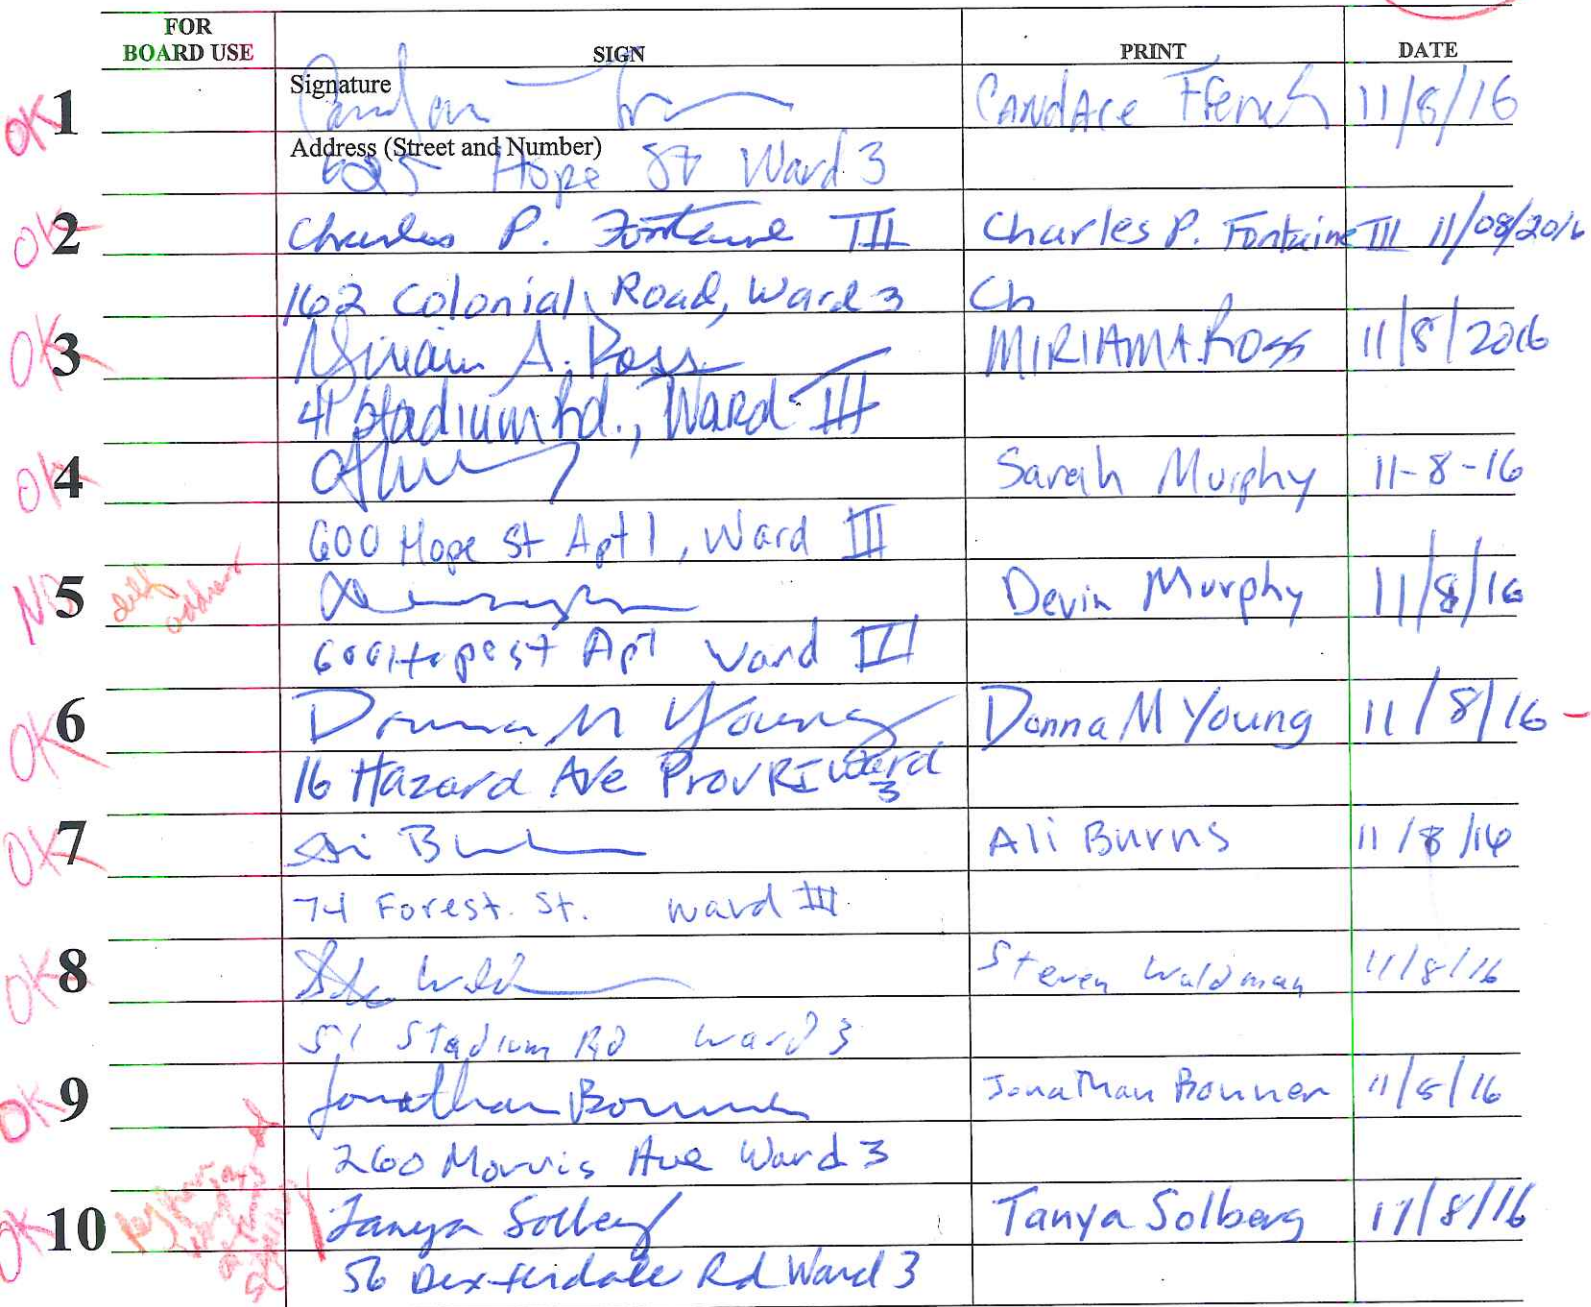 FOR BOARD USE SIGN PRINT DATE
OK 1 Signature CANDAce Ffench 11/8/16
Address (Street and Number)
625 Hope St Ward 3
OK 2 Charles P. Fontaine III Charles P. Fontaine III 11/08/2016
162 Colonial Road, Ward 3 Ch
OK 3 Miriam A. Ross MIRIAM A. ROSS 11/8/2016
41 Stadium Rd., Ward III
OK 4 Sarah Murphy 11-8-16
600 Hope St Apt 1, Ward III
NO 5 diff address Devin Murphy 11/8/16
600 Hope st Apt Ward III
OK 6 Donna M Young Donna M Young 11/8/16
16 Hazard Ave Prov RI Ward 3
OK 7 Ali Burns 11/8/16
74 Forest. St. ward III
OK 8 Steven Waldman 11/8/16
51 Stadium Rd ward 3
OK 9 Jonathan Bonner Jonathan Bonner 11/8/16
260 Morris Ave Ward 3
OK 10 Tanya Solberg Tanya Solberg 11/8/16
56 Dexterdale Rd Ward 3